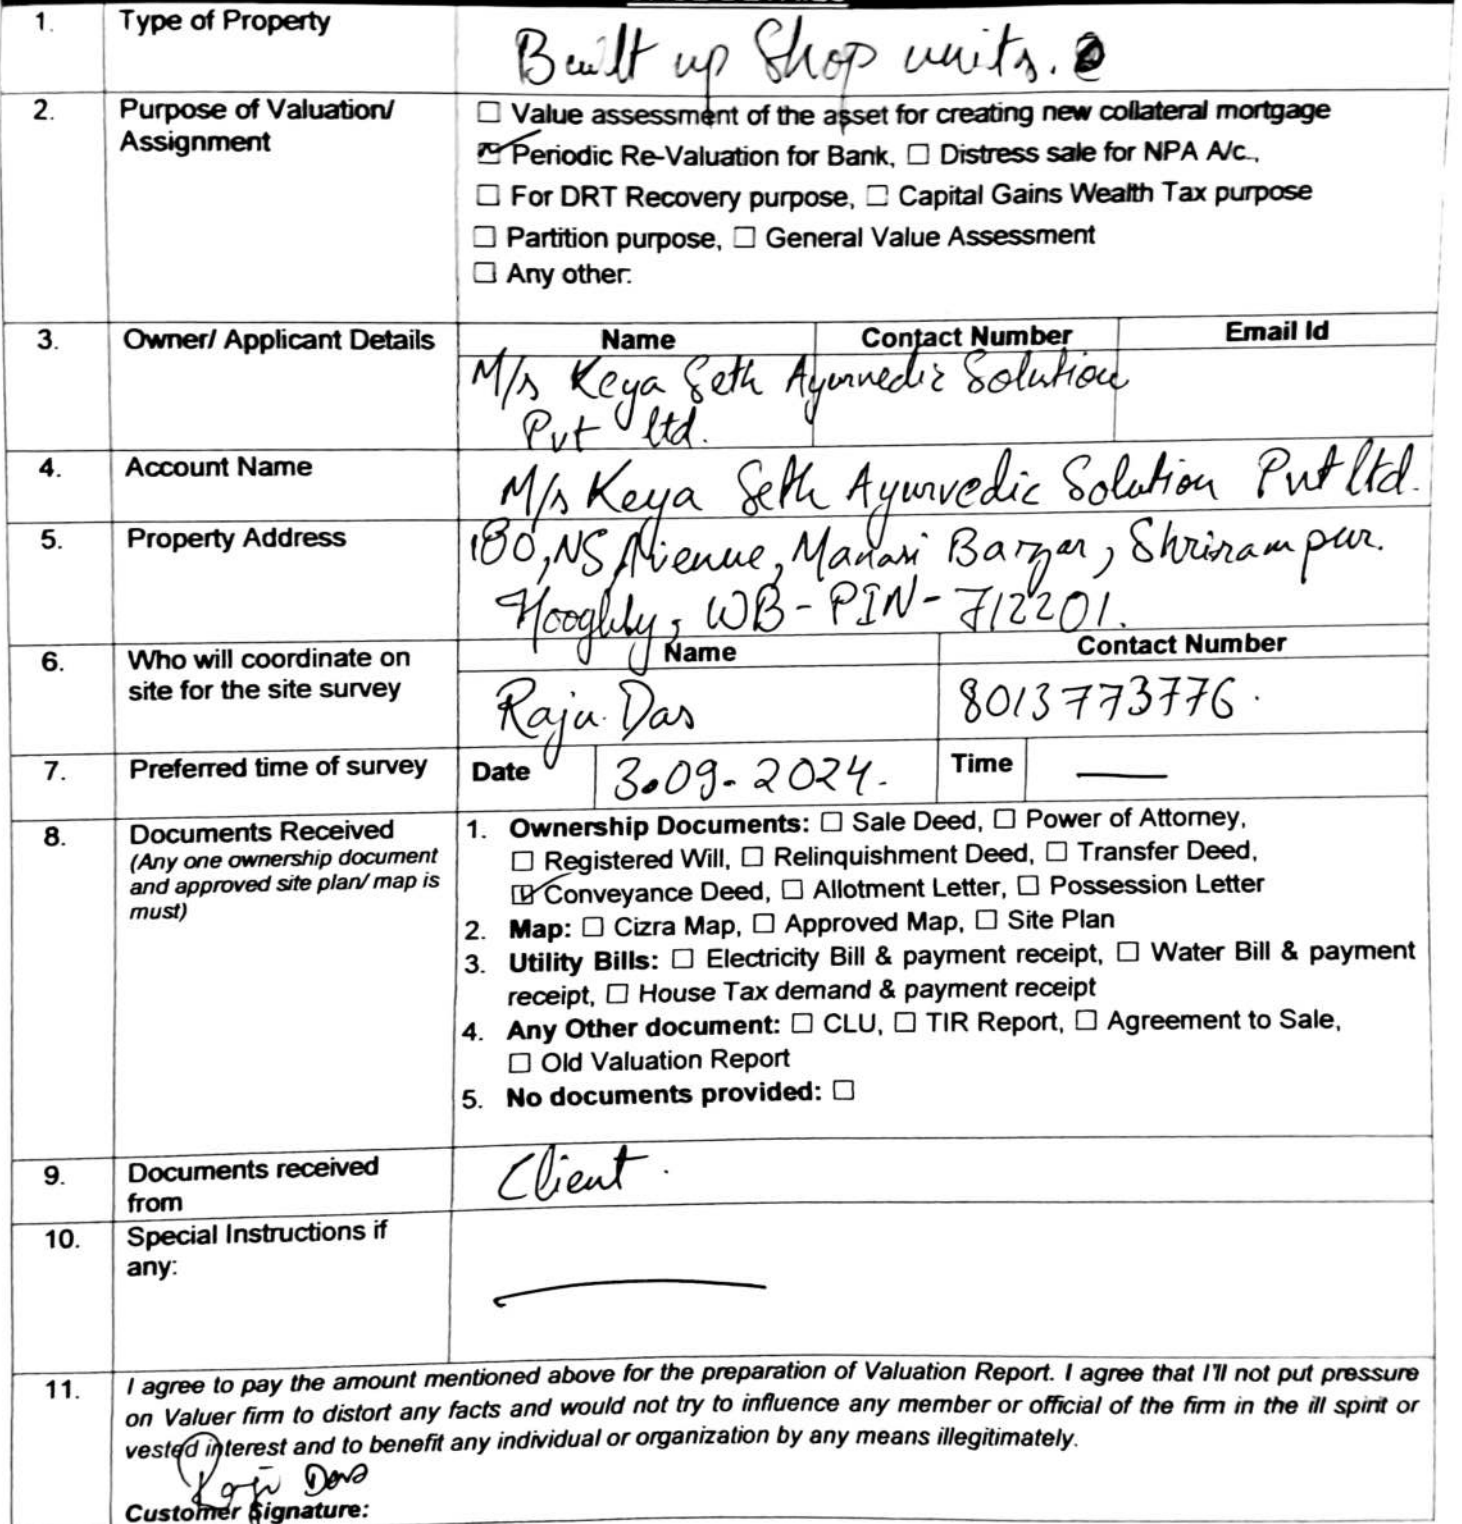 1. Type of Property Built up Shop units.
2. Purpose of Valuation/ Assignment
☐ Value assessment of the asset for creating new collateral mortgage
☑ Periodic Re-Valuation for Bank, ☐ Distress sale for NPA A/c.,
☐ For DRT Recovery purpose, ☐ Capital Gains Wealth Tax purpose
☐ Partition purpose, ☐ General Value Assessment
☐ Any other:
3. Owner/ Applicant Details Name Contact Number Email Id
M/s Keya Seth Ayurvedic Solution
Pvt ltd.
4. Account Name M/s Keya Seth Ayurvedic Solution Pvt ltd.
5. Property Address 180, NS Avenue, Manasi Bazar, Shrirampur.
Hooghly, WB - PIN - 712201.
6. Who will coordinate on Name Contact Number
site for the site survey Raju Das 8013773776.
7. Preferred time of survey Date 3.09.2024. Time —
8. Documents Received
(Any one ownership document
and approved site plan/ map is
must)
1. Ownership Documents: ☐ Sale Deed, ☐ Power of Attorney,
☐ Registered Will, ☐ Relinquishment Deed, ☐ Transfer Deed,
☑ Conveyance Deed, ☐ Allotment Letter, ☐ Possession Letter
2. Map: ☐ Cizra Map, ☐ Approved Map, ☐ Site Plan
3. Utility Bills: ☐ Electricity Bill & payment receipt, ☐ Water Bill & payment
receipt, ☐ House Tax demand & payment receipt
4. Any Other document: ☐ CLU, ☐ TIR Report, ☐ Agreement to Sale,
☐ Old Valuation Report
5. No documents provided: ☐
9. Documents received
from Client.
10. Special Instructions if
any: —
11. I agree to pay the amount mentioned above for the preparation of Valuation Report. I agree that I'll not put pressure
on Valuer firm to distort any facts and would not try to influence any member or official of the firm in the ill spirit or
vested interest and to benefit any individual or organization by any means illegitimately.
Raju Das
Customer Signature: